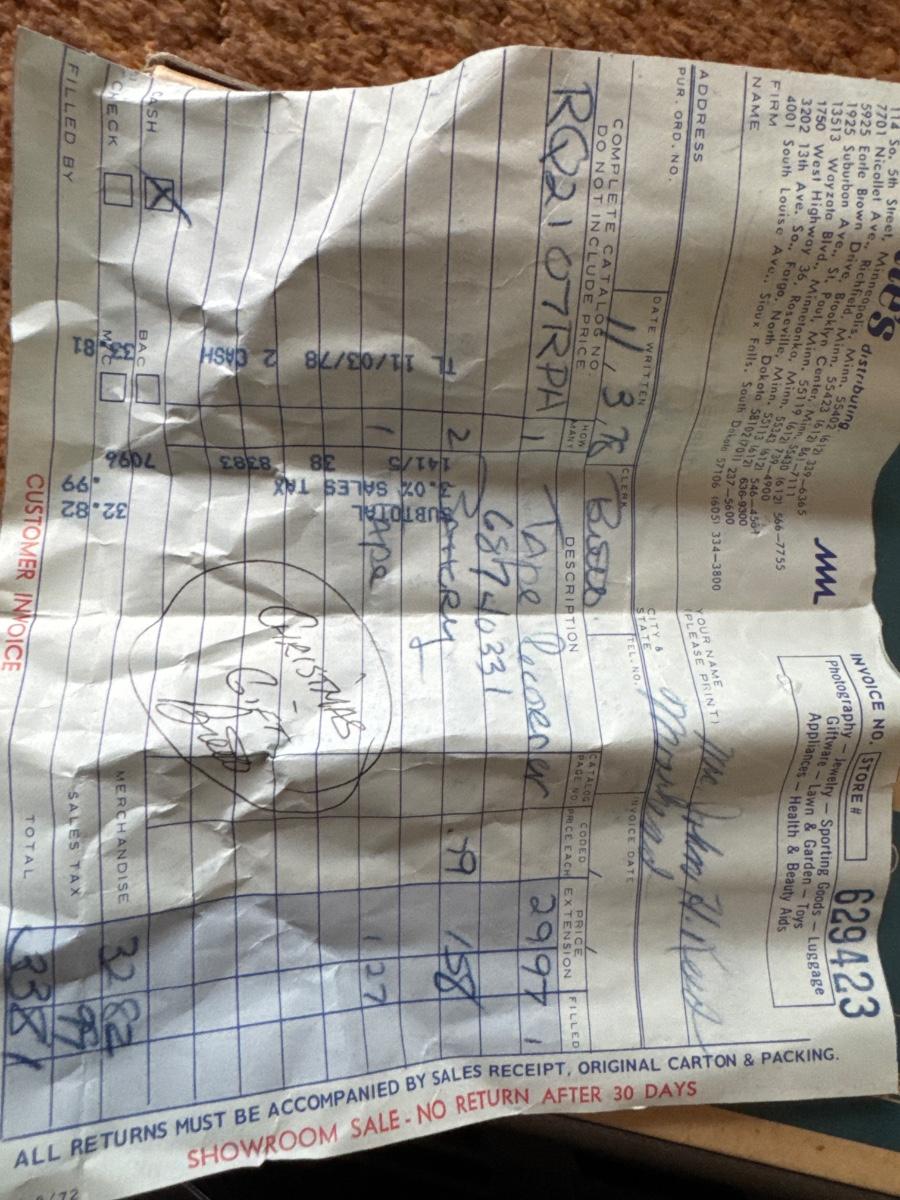 distributing
114 So. 5th Street, Minneapolis, Minn. 55402 (612) 339-6365
7701 Nicollet Ave., Richfield, Minn. 55423 (612) 861-7111
5925 Earle Brown Drive, Brooklyn Center, Minn. 55430 (612) 566-7755
1925 Suburban Ave., St. Paul, Minn. 55119 (612) 739-4900
13513 Wayzata Blvd., Minnetonka, Minn. 55343 (612) 546-4581
1750 West Highway 36, Roseville, Minn. 55113 (612) 636-9300
3202 13th Ave. So., Fargo, North Dakota 58102 (701) 237-5600
4001 South Louise Ave., Sioux Falls, South Dakota 57106 (605) 334-3800
INVOICE NO. 629423
STORE #
Photography – Jewelry – Sporting Goods – Luggage
Giftware – Lawn & Garden – Toys
Appliances – Health & Beauty Aids
FIRM
NAME
YOUR NAME
(PLEASE PRINT)
ADDRESS
CITY &
STATE
PUR. ORD. NO.
DATE WRITTEN 11/3/78
CLERK
TEL. NO.
INVOICE DATE
COMPLETE CATALOG NO.
DO NOT INCLUDE PRICE.
HOW MANY
DESCRIPTION
CATALOG PAGE NO
CODED PRICE EACH
PRICE EXTENSION
FILLED
RQ2107RPA 1 Tape Recorder 2997 1
68740331
2 Battery .79 158
1 Tape 127
TL 141/5 SUBTOTAL 32.82
11/03/78 3.0% SALES TAX .99
38 8383
2 CASH 7096 33.81
CHRISTMAS
GIFT
CASH X
BAC
CHECK
M/C
MERCHANDISE 32 82
SALES TAX 99
FILLED BY
TOTAL 33 81
CUSTOMER INVOICE
ALL RETURNS MUST BE ACCOMPANIED BY SALES RECEIPT, ORIGINAL CARTON & PACKING.
SHOWROOM SALE - NO RETURN AFTER 30 DAYS